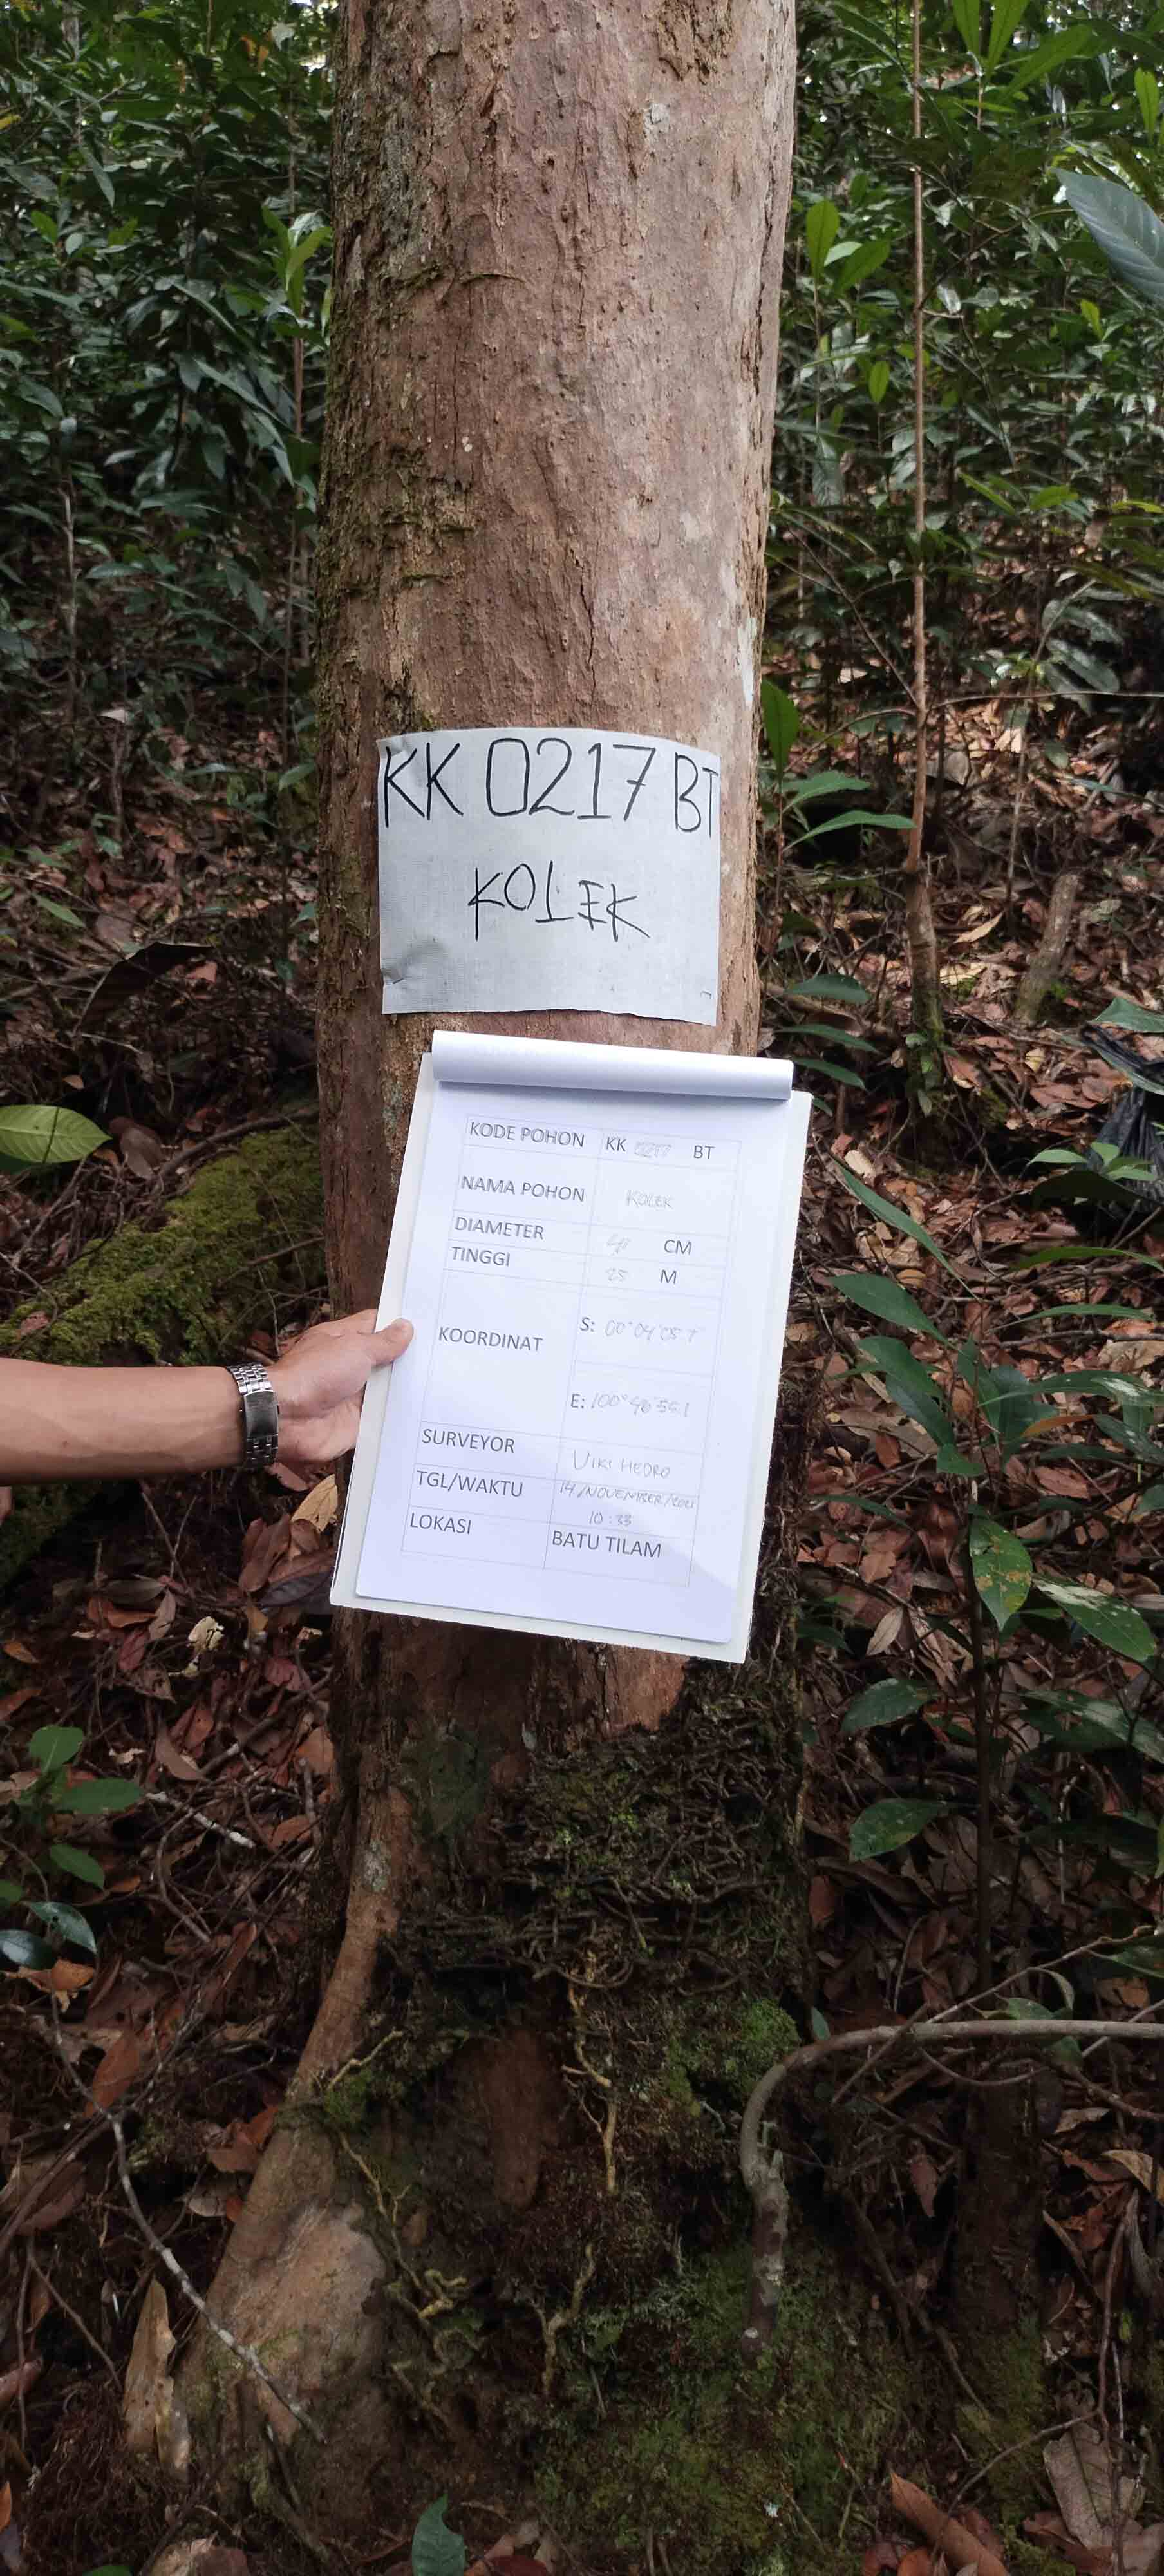 KK 0217 BT
KOLEK
KODE POHON KK 0217 BT
NAMA POHON KOLEK
DIAMETER CM
TINGGI 25 M
KOORDINAT
S: 00°04'05.7"
E: 100°46'55.1
SURVEYOR VIKI HEDRO
TGL/WAKTU 14/NOVEMBER/2021
10:33
LOKASI BATU TILAM